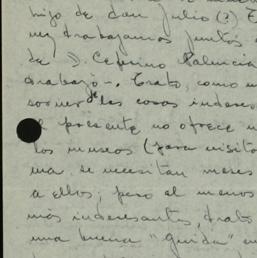 hijo de don Julio (?) E
vez trabajamos juntos
de D. Ceferino Palencia
trabajo-. Trato, como
de las cosas interes
el presente no ofrece
los museos (para visita
ma, se necesitan meses
a ellos; pero al menos
más interesantes, trato
una buena "guida" en